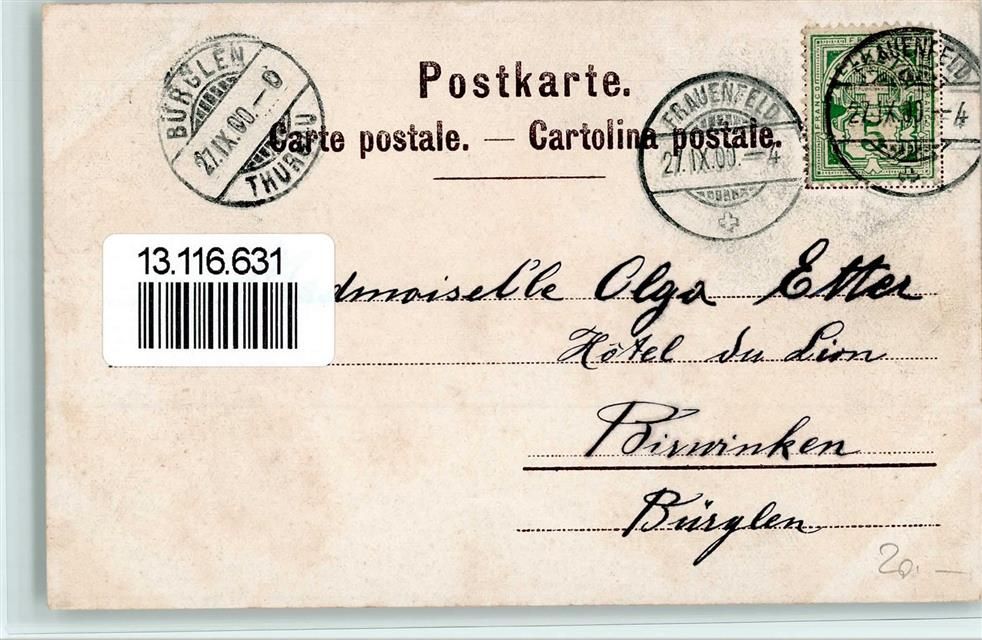 Postkarte.
Carte postale. — Cartolina postale.
BÜRGLEN
27.IX.00.—9
THURGAU
FRAUENFELD
27.IX.00.—4
FRAUENFELD
27.IX.00.—4
5
13.116.631
demoiselle Olga Etter
Hôtel du Lion
Birwinken
Bürglen
20.—